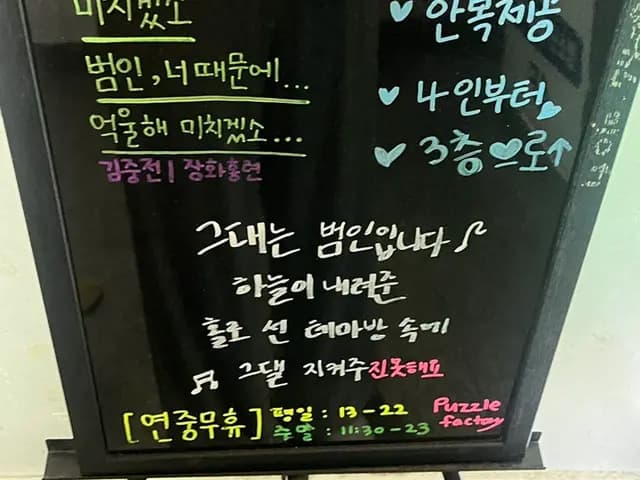 미치겠소
범인, 너 때문에...
억울해 미치겠소...
김중전 | 장화홍련
안복제공
4인부터
3층으로↑
그대는 범인입니다
하늘이 내려준
홀로 선 테마방 속에
그댈 지켜주진못해요
[연중무휴] 평일 : 13-22
주말 : 11:30-23
Puzzle
factory